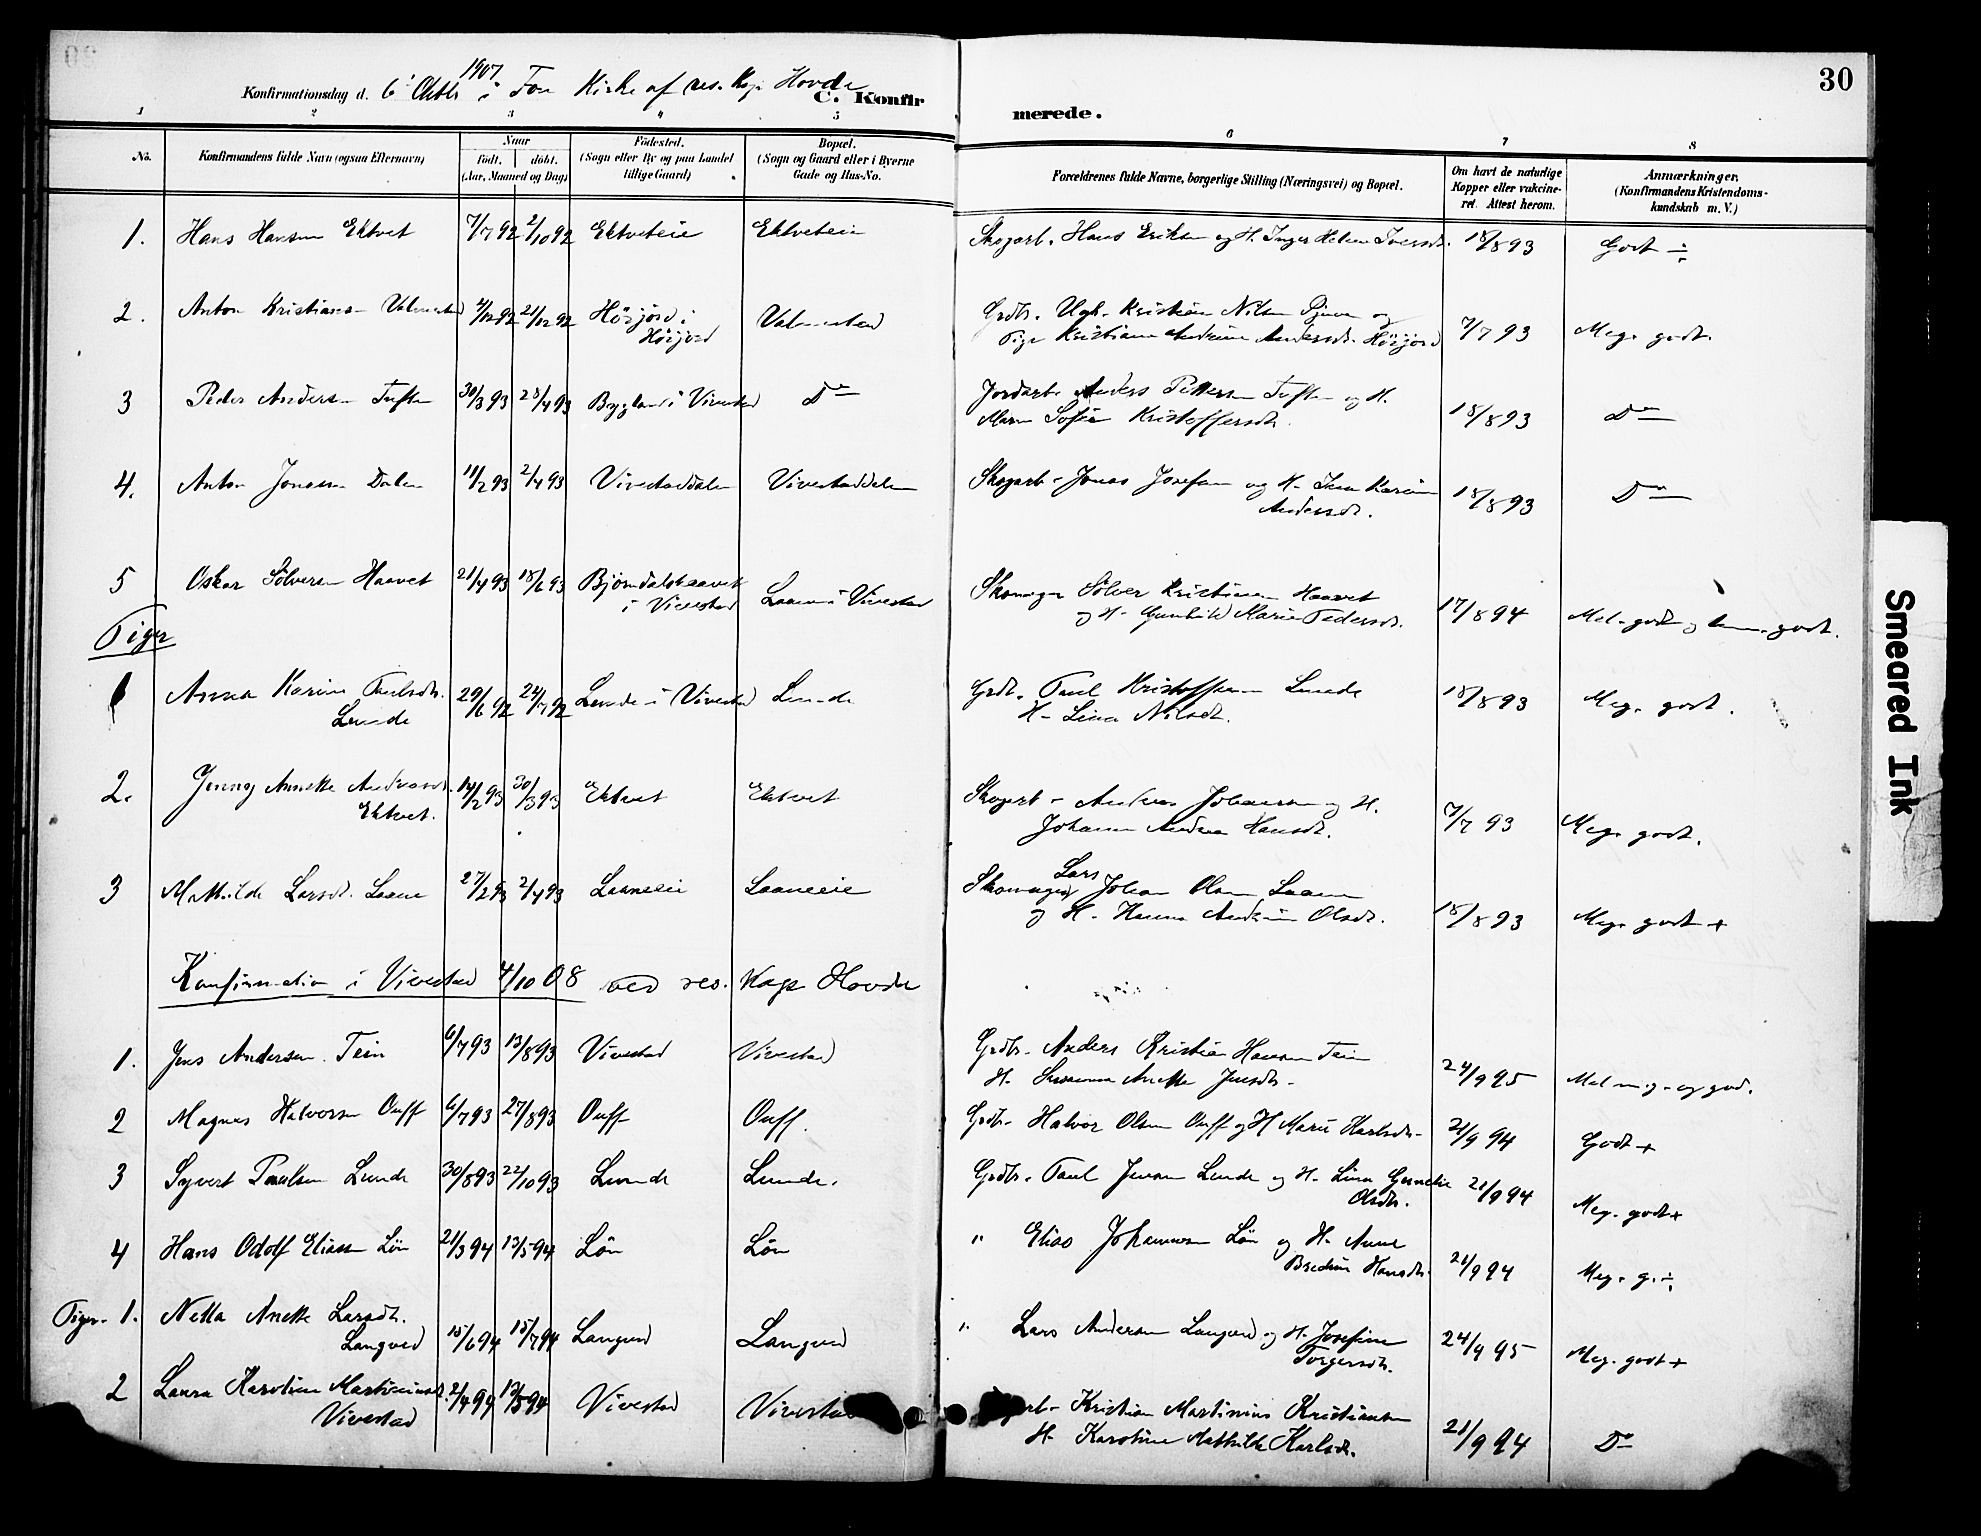 30
Konfirmationsdag d. 6 Oktb 1907 i Fon Kirke af res. Kap. Hovde
C. Konfirmerede.
1 2 3 4 5 6 7 8
No.
Konfirmandens fulde Navn (ogsaa Efternavn)
Naar
født. døbt.
(Aar, Maaned og Dag)
Fødested.
(Sogn eller By og paa Landet
tillige Gaard)
Bopæl.
(Sogn og Gaard eller i Byerne
Gade og Hus-No.
Forældrenes fulde Navne, borgerlige Stilling (Næringsvei) og Bopæl.
Om havt de naturlige
Kopper eller vakcine-
ret. Attest herom.
Anmærkninger.
(Konfirmandens Kristendoms-
kundskab m. V.)
1. Hans Hansen Ektvet 7/7 92 2/10 92 Ektveteie Ektveteie Skogarb. Hans Eriksen og H. Inger Helene Iversdt. 18/8 93 Godt ÷
2. Anton Kristiansen Valmestad 4/12 92 21/12 92 Høijord i Valmestad Grdb. Ugk. Kristian Nilsen og
Høijord Pige Kristiane Andrine Andersdt. Høijord 7/7 93 Meg. godt.
3 Peder Andersen Tuften 30/3 93 23/4 93 Bygland i Vivestad Do Jordarb. Anders Pettersen Tuften og H.
Maren Sofie Kristoffersdt. 18/8 93 Do
4. Anton Jonassen Dalen 11/2 93 2/4 93 Vivestaddalen Vivestaddalen Skogarb. Jonas Josefsen og H. Karine
Andersdt. 18/8 93 Do
5 Oskar Sølversen Haavet 21/4 93 18/6 93 Bjørndalshaavet Laane i Vivestad Skomager Sølver Kristiansen Haavet
i Vivestad og H. Gunhild Marie Pedersdt. 17/8 94 Mel. godt og godt.
Piger
1 Anna Karine Paulsdt. 29/6 92 24/7 92 Lunde i Vivestad Lunde Grdb. Paul Kristoffersen Lunde 18/8 93 Meg. godt.
Lunde H. Lina Nilsdt.
2. Jenny Annette Andreasdt. 14/2 93 30/3 93 Ektvet Ektvet Skogarb. Andreas Johansen og H.
Ektvet. Johanne Andrea Hansdt. 7/7 93 Meg. godt.
3 Mathilde Larsdt. Laane 27/2 93 2/4 93 Laaneeie Laaneeie Skomager Lars Johan Olsen Laane
og H. Hanna Andrine Olsdt. 18/8 93 Meg. godt +
Konfirmation i Vivestad 4/10 08 ved res. Kap. Hovde
1. Jens Andersen Tein 6/7 93 13/8 93 Vivestad Vivestad Grdb. Anders Kristian Hansen Tein
H. Anette Jensdt. 24/9 95 Mel. meg. og god.
2 Magnus Halvorsen Ouff 6/7 93 27/8 93 Ouff Ouff. Grdb. Halvor Olsen Ouff og H Marie Karlsdt. 21/9 94 Godt +
3 Syvert Paulsen Lunde 30/8 93 22/10 93 Lunde Lunde. Grdb. Paul Jensen Lunde og H. Lina
Olsdt. 21/9 94 Meg. godt +
4 Hans Odolf Eliassen Løn 21/3 94 13/5 94 Løn Løn " Elias Johannesen Løn og H. Anne
Hansdt. 21/9 94 Meg. g. ÷
Piger. 1. Netta Anette Larsdt.
Langved 15/6 94 15/7 94 Langved Langved " Lars Andersen Langved og H. Josefine
Torgersdt. 24/9 95 Meg. godt +
2 Laura Karoline Martiniusdt. 2/4 94 13/5 94 Vivestad Vivestad Kristian Martinius Kristiansen
Vivestad H. Karoline Mathilde Karlsdt. 21/9 94 Do
Smeared Ink